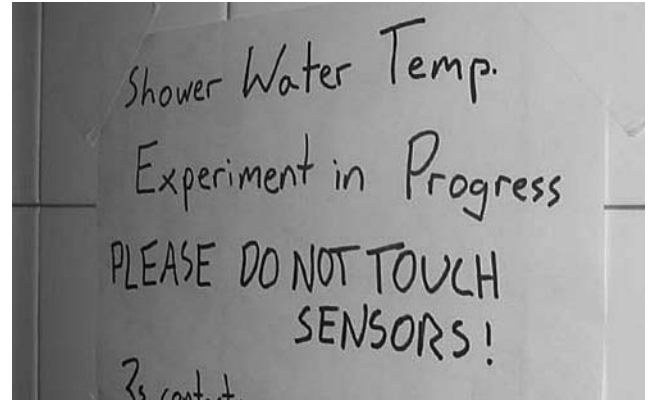 Shower Water Temp.
Experiment in Progress
PLEASE DO NOT TOUCH
SENSORS!